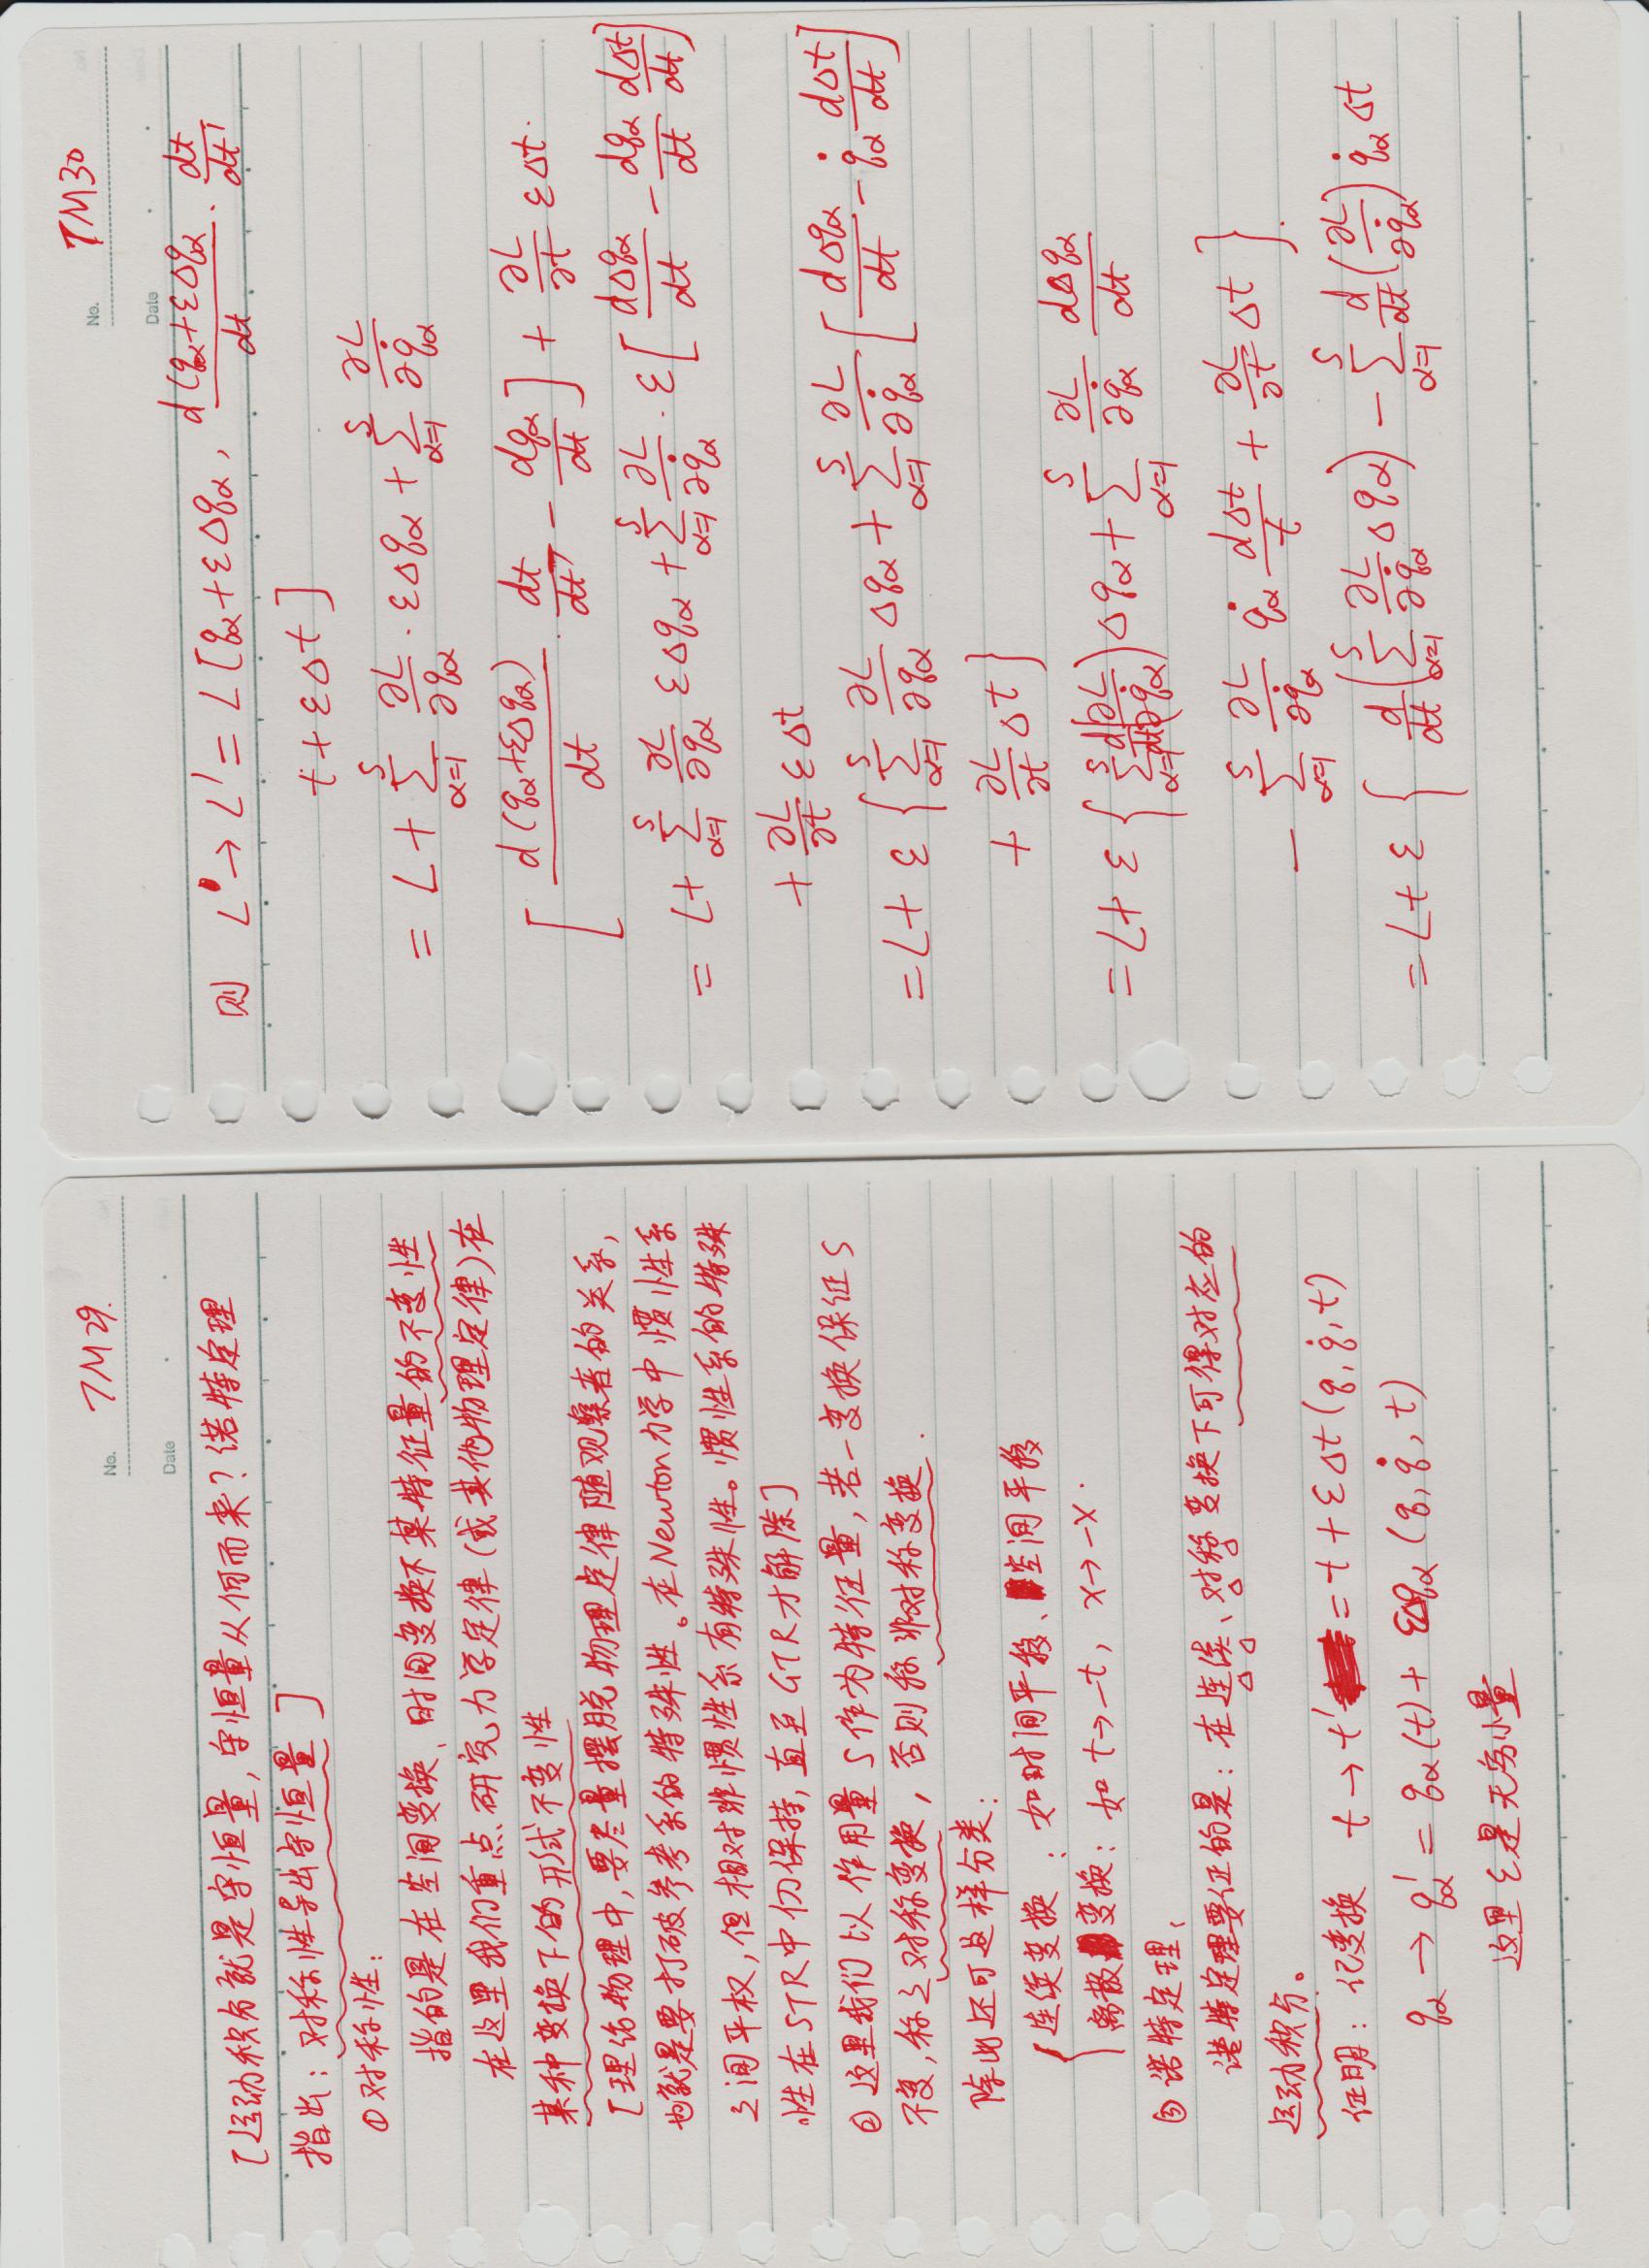 No. TM29.
Date
[运动积分就是守恒量,守恒量从何而来?诺特定理
指出:对称性导出守恒量]
①对称性:
指的是在空间变换、时间变换下某特征量的不变性
在这里我们重点研究力学定律(或其他物理定律)在
某种变换下的形式不变性
[理论物理中,要尽量摆脱物理定律随观察者的关系,
也就是要打破参考系的特殊性。在Newton力学中惯性系
之间平权,但相对非惯性系有特殊性。惯性系的特殊
性在STR中仍保持,直至GTR才解除]
②这里我们以作用量S作为特征量,若一变换保证S
不变,称之对称变换,否则称非对称变换.
除此还可这样分类:
{连续变换:如时间平移、空间平移
离散变换:如t→-t, x→-x.
③诺特定理、
诺特定理要证的是:在连续、对称变换下可得对应的
运动积分。
证明:记变换 t→t'=t+εΔt(q,q̇,t)
qα→qα'=qα(t)+εΔqα(q,q̇,t)
这里ε是无穷小量
No. TM30
Date
则 L→L'=L[qα+εΔqα, d(qα+εΔqα/dt · dt/dt'
t+εΔt]
=L+∑_{α=1}^{S} ∂L/∂qα · εΔqα+∑_{α=1}^{S} ∂L/∂q̇α
[d(qα+εΔqα)/dt · dt/dt' - dqα/dt]+∂L/∂t εΔt.
=L+∑_{α=1}^{S} ∂L/∂qα εΔqα+∑_{α=1}^{S} ∂L/∂q̇α · ε[dΔqα/dt - dqα/dt dΔt/dt]
+∂L/∂t εΔt
=L+ε{∑_{α=1}^{S} ∂L/∂qα Δqα+∑_{α=1}^{S} ∂L/∂q̇α [dΔqα/dt - q̇α dΔt/dt]
+∂L/∂t Δt}
=L+ε{∑_{α=1}^{S} d/dt(∂L/∂q̇α)Δqα+∑_{α=1}^{S} ∂L/∂q̇α dΔqα/dt
-∑_{α=1}^{S} ∂L/∂q̇α q̇α dΔt/t+∂L/∂t Δt}.
=L+ε{d/dt(∑_{α=1}^{S} ∂L/∂q̇α Δqα)-∑_{α=1}^{S} d/dt(∂L/∂q̇α) q̇α Δt